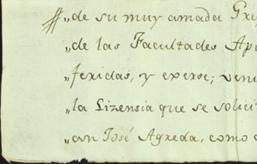 „de su muy amada Gre
„de las Facultades Apo
„feridas, y exerse; veni
„la Lizensia que se solici
„an José Agreda, como a